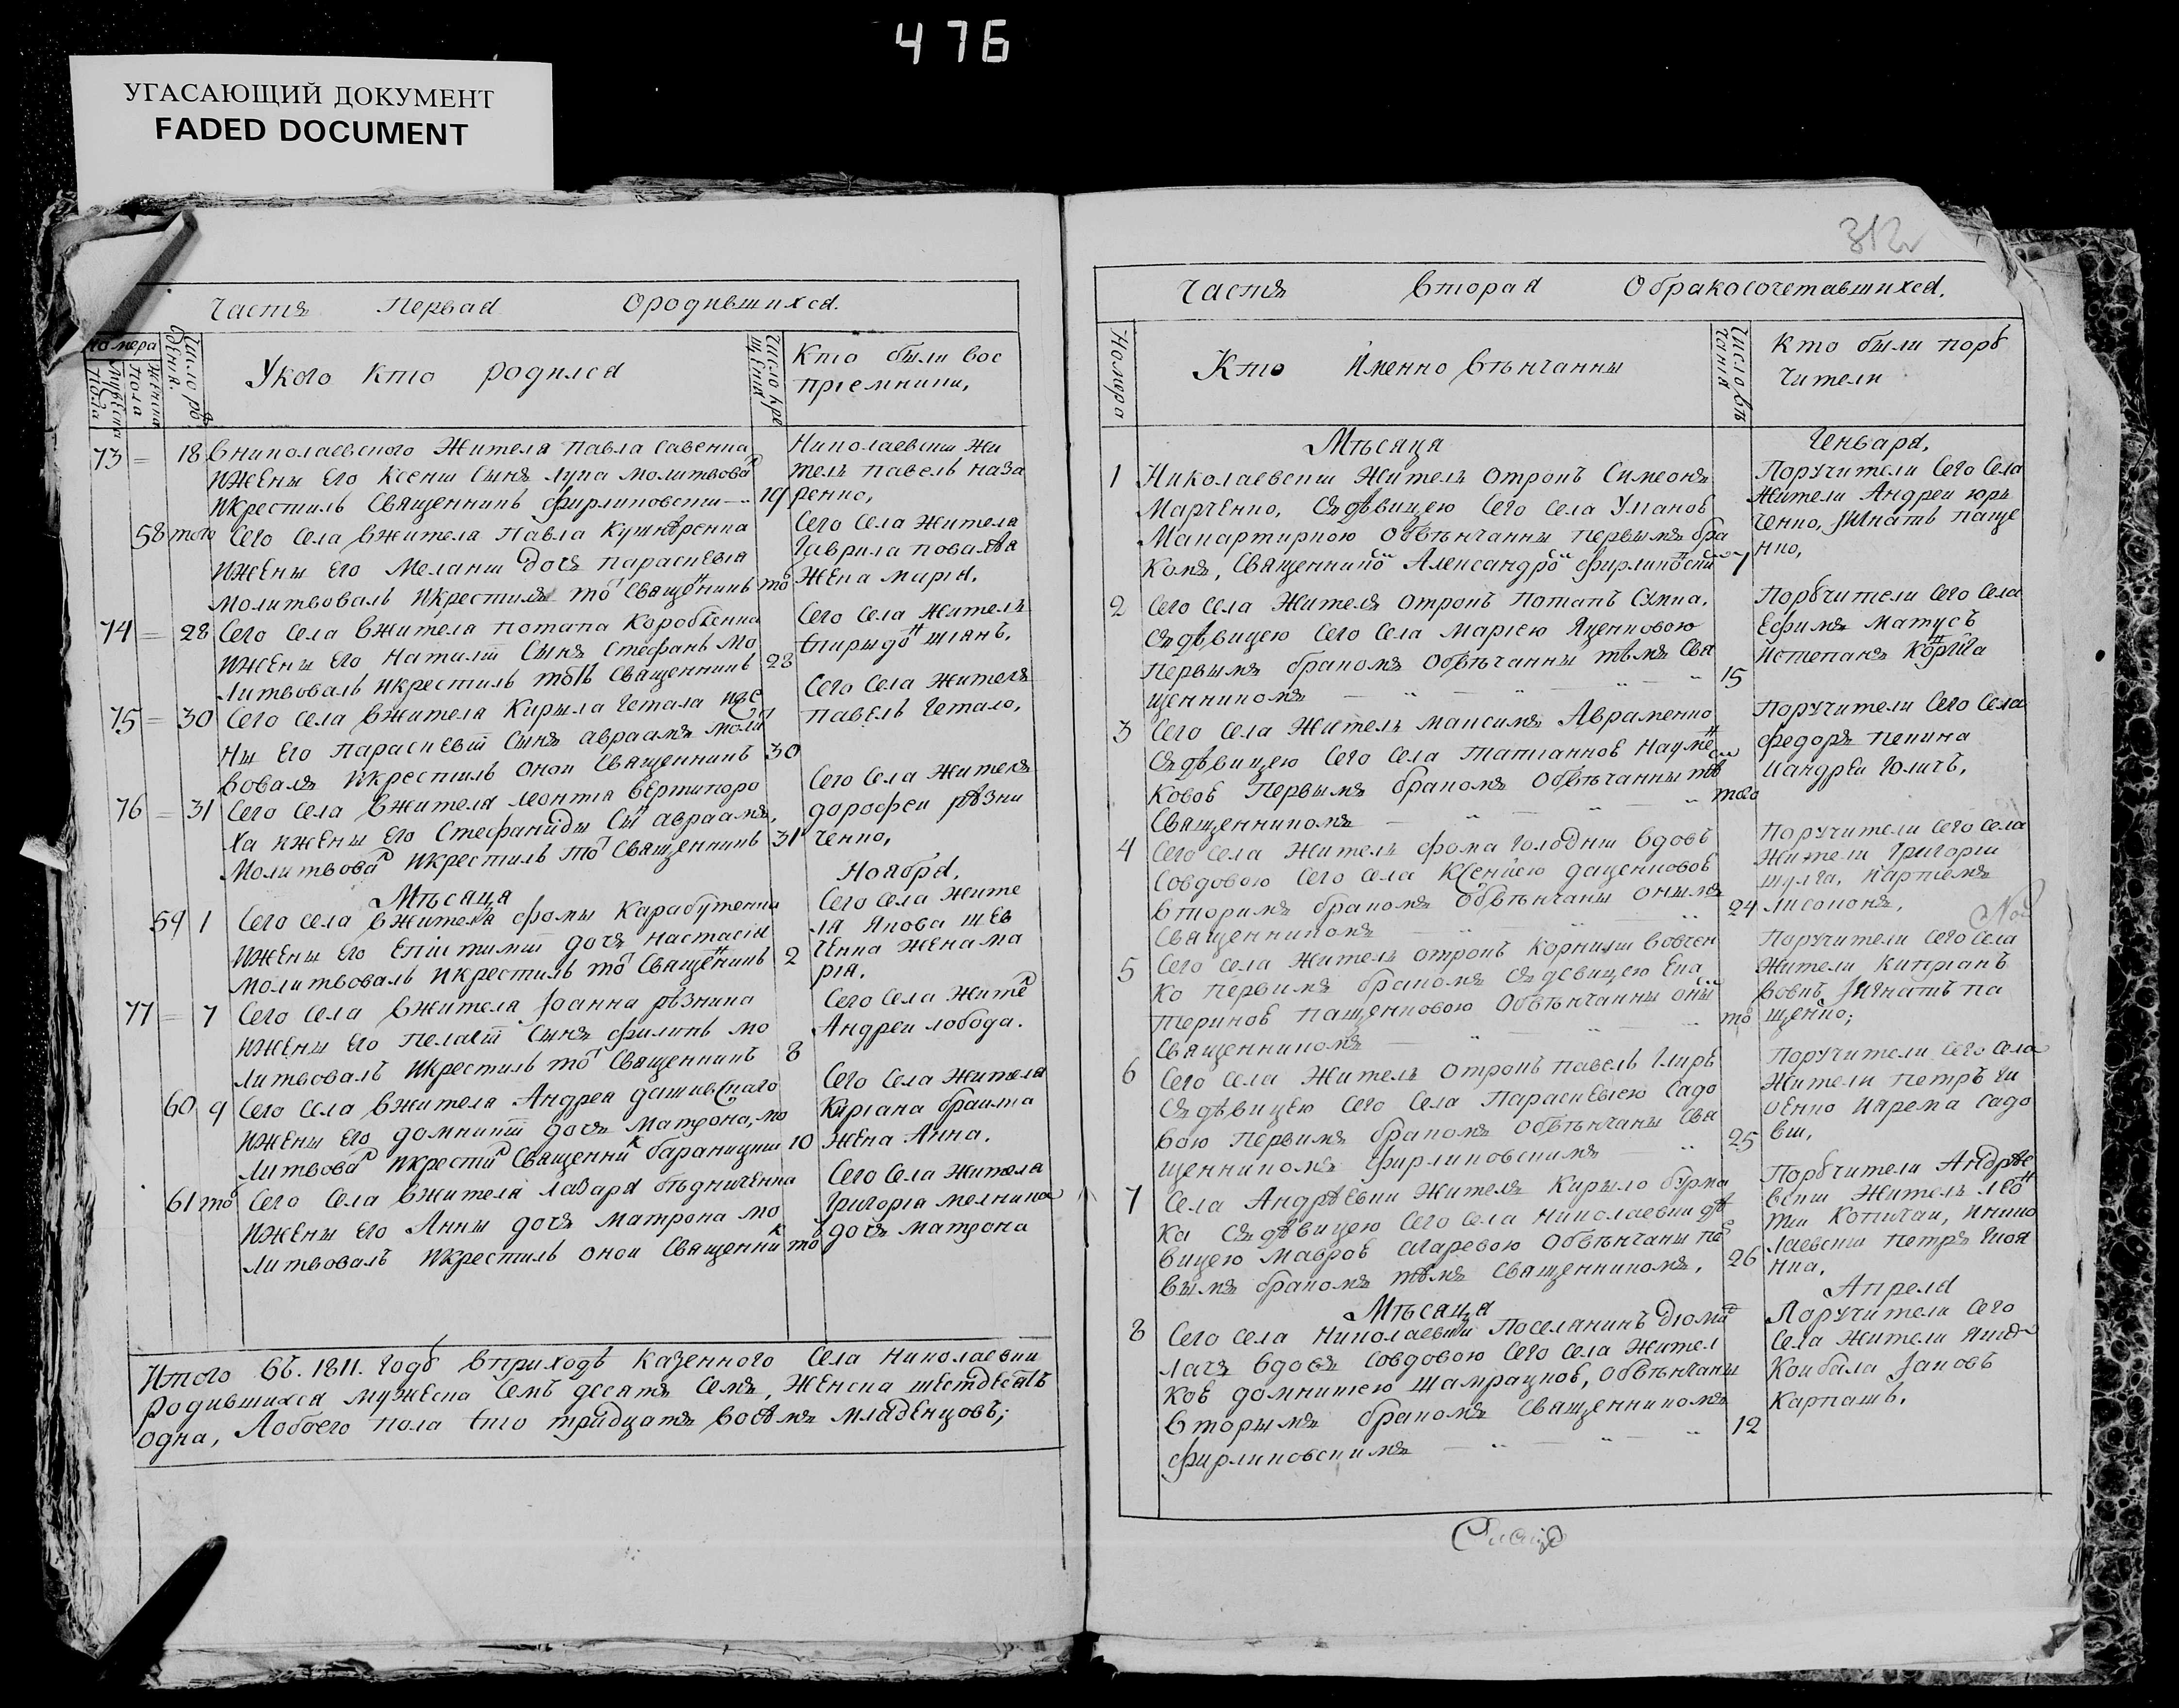 476
УГАСАЮЩИЙ ДОКУМЕНТ
FADED DOCUMENT
Частя Первая Ородившихся.
Номера
Мужеска Пола
Женска Пола
Число рождения.
Укого кто родился
Число крещения
Кто были вос
приемники,
73 = 18 Вниколаевского Жителя Павла Савенка
ижены Его Ксении Сынъ Лука молитвовал
икрестилъ Священникъ Фирликовский 19
Николаевский жи
тель Павелъ Наза
ренко,
58 того Сего Села Вжителя Павла Кушнѣренка
ижены Его Мелании дочъ Параскевия
молитвовалъ икрестилъ той Священникъ того
Сего Села Жителя
Гаврила
Жена Мария.
74 = 28 Сего Села Вжителя Потапа Коробченка
ижены Его Наталии Сынъ Стефанъ мо
литвовалъ икрестилъ той Священникъ 28
Сего Села Житель
75 = 30 Сего Села Вжителя Кирила Гетала иже
ны Его Параскевии Сынъ Авраамъ моли
вовалъ икрестилъ оной Священникъ 30
Сего Села Житель
Павелъ Гетало,
76 = 31 Сего Села Вжителя Леонтия Вертипоро
ха ижены Его Стефаниды Сынъ Авраамъ,
молитвовал икрестилъ той Священникъ 31
Сего Села Житель
Дорофей Рѣзни
ченко,
Мѣсяця Ноября,
59 1 Сего Села Вжителя Фомы Карабутенка
ижены Его Епистимии дочъ Настасия
молитвовалъ икрестилъ той Священникъ 2
Сего Села Жите
ля Якова Шев
ченка Жена Ма
рия.
77 = 7 Сего Села Вжителя Иоанна Рѣзника
ижены Его Пелагии Сынъ Филипъ мо
литвовалъ икрестилъ той Священникъ 8
Сего Села Жител
Андрей Лобода.
60 9 Сего Села Вжителя Андрея Дашевскаго
ижены Его Домникии дочъ Матрона, мо
литвовал икрестил Священник Бараницкий 10
Сего Села Жителя
Кириана
Жена Анна.
61 то Сего Села Вжителя Лазаря Бѣдниченка
ижены Его Анны дочъ Матрона мо
литвовалъ икрестилъ оной Священник того
Сего Села Жителя
Григория Мелника
дочъ Матрона
Итого Въ. 1811. году Вприходѣ Казенного Села Николаевки
родившихся мужеска Семъ десятъ Семъ, Женска шестдесятъ
одна, Аобоего пола Сто тридцатъ восѣмъ младенцовъ;
312
Частя вторая Обракосочетавшихся.
Номера
Кто Именно Вѣнчанны
Число вѣнчания
Кто были пору
чители
Мѣсяця Генваря,
1 Николаевский Житель отрокъ Симеонъ
Марченко, Сдѣвицею Сего Села Улианов
Макартиркою Обвѣнчанны первымъ бра
комъ, Священникомъ Александромъ Фирликовским 7
Поручители Сего Села
Жители Андрей Юръ
ченко, Игнатъ Паще
нко,
2 Сего Села Житель отрокъ Потапъ Сукиа.
Сдѣвицею Сего Села Мариею Яценковою
Первымъ бракомъ Обвѣнчанны тѣмъ Свя
щенникомъ 15
Поручители Сего Села
Ефимъ Матусъ
Истепанъ
3 Сего Села Житель Максимъ Авраменко
Сдѣвицею Сего Села Татианною Наумен
ковою Первымъ бракомъ Обвѣнчанны тѣм
Священникомъ того
Поручители Сего Села
Федоръ Пекина
Иандрей Голичъ,
4 Сего Села Житель Фома Голодний вдовъ
Совдовою Сего Села Ксениею Даценковою
вторимъ бракомъ Обвѣнчаны онымъ
Священникомъ 24
Поручители Сего Села
Жители Григорий
Шулга, Иартемъ
Лисоконъ,
5 Сего Села Житель отрокъ Корнилий Вовчен
ко первимъ бракомъ Сдевицею Ека
териною Пащенковою Обвѣнчанны оным
Священникомъ то
Поручители Сего Села
Жители Киприанъ
Вовкъ, Игнатъ Па
щенко;
6 Сего Села Житель отрокъ Павелъ Гниръ
Сдѣвицею Сего Села Параскевиею Садо
вою первимъ бракомъ Обвѣнчаны Свя
щенникомъ Фирликовскимъ 25
Поручители Сего Села
Жители Петръ Ги
Иарема Садо
вий,
7 Села Андрѣевки Житель Кирыло Бурла
ка Сдѣвицею Сего Села Николаевки дѣ
вицею Маврою Агаревою Обвѣнчаны пе
вымъ бракомъ тѣмъ Священникомъ, 26
Поручители Андрѣе
вский Житель Леон
тий Копичай, Инико
лаевский Петръ
Мѣсяця Апреля
8 Сего Села Николаевки Поселянинъ Диоми
вдовъ Совдовою Сего Села Жител
кою Домникиею Шамрацкою, Обвѣнчаны
вторымъ бракомъ Священникомъ
Фирликовскимъ 12
Поручители Сего
Села Жители
Койбала Иаковъ
Карпашъ.